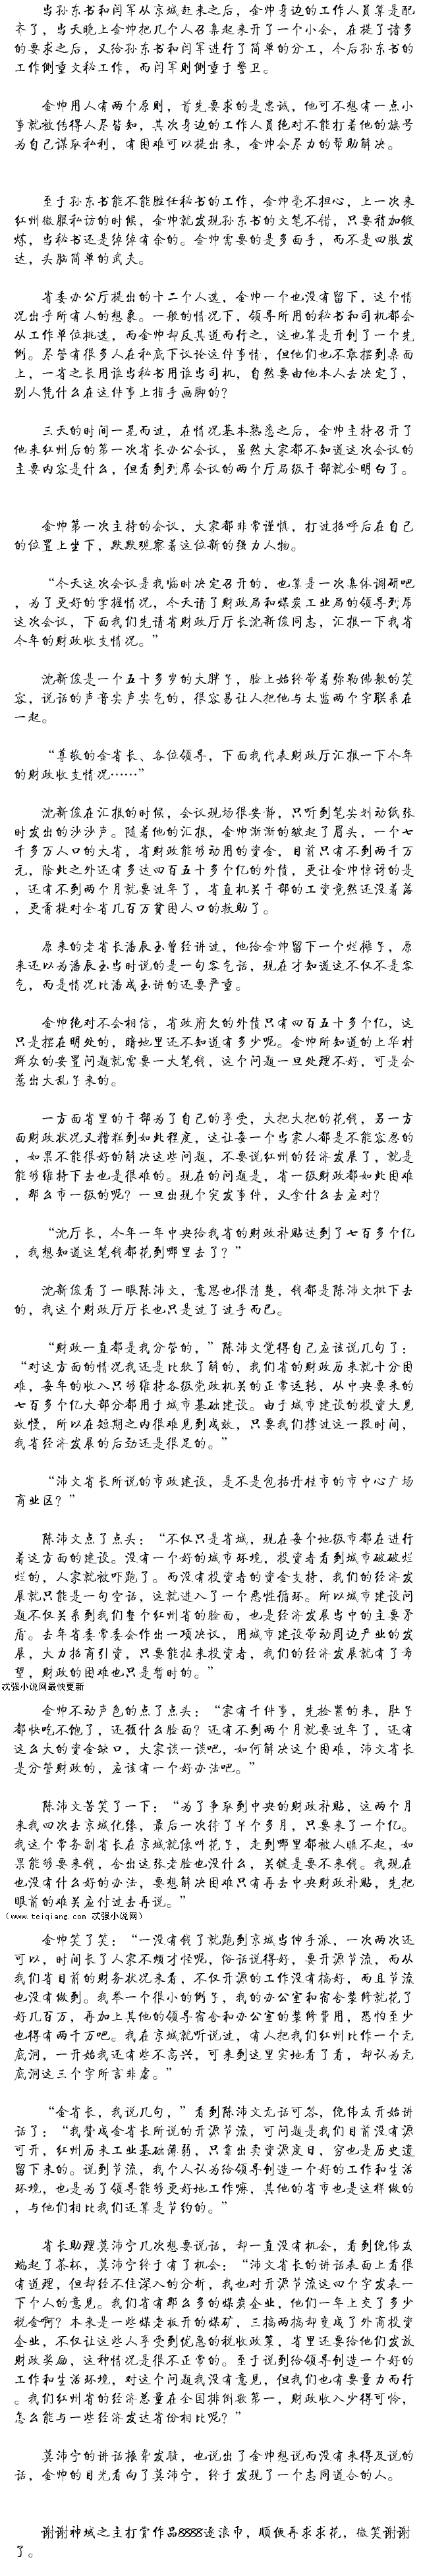 当孙东书和闫军从京城赶来之后，金帅身边的工作人员算是配
齐了，当天晚上金帅把几个人召集起来开了一个小会，在提了诸多
的要求之后，又给孙东书和闫军进行了简单的分工，今后孙东书的
工作侧重文秘工作，而闫军则侧重于警卫。
金帅用人有两个原则，首先要求的是忠诚，他可不想有一点小
事就被传得人尽皆知，其次身边的工作人员绝对不能打着他的旗号
为自己谋取私利，有困难可以提出来，金帅会尽力的帮助解决。
至于孙东书能不能胜任秘书的工作，金帅毫不担心，上一次来
红州微服私访的时候，金帅就发现孙东书的文笔不错，只要稍加锻
炼，当秘书还是绰绰有余的。金帅需要的是多面手，而不是四肢发
达，头脑简单的武夫。
省委办公厅提出的十二个人选，金帅一个也没有留下，这个情
况出乎所有人的想象。一般的情况下，领导所用的秘书和司机都会
从工作单位挑选，而金帅却反其道而行之，这也算是开创了一个先
例。尽管有很多人在私底下议论这件事情，但他们也不敢摆到桌面
上，一省之长用谁当秘书用谁当司机，自然要由他本人去决定了，
别人凭什么在这件事上指手画脚的？
三天的时间一晃而过，在情况基本熟悉之后，金帅主持召开了
他来红州后的第一次省长办公会议，虽然大家都不知道这次会议的
主要内容是什么，但看到列席会议的两个厅局级干部就全明白了。
金帅第一次主持的会议，大家都非常谨慎，打过招呼后在自己
的位置上坐下，默默观察着这位新的强力人物。
“今天这次会议是我临时决定召开的，也算是一次集体调研吧
，为了更好的掌握情况，今天请了财政局和煤炭工业局的领导列席
这次会议，下面我们先请省财政厅厅长沈新俊同志，汇报一下我省
今年的财政收支情况。”
沈新俊是一个五十多岁的大胖子，脸上始终带着弥勒佛般的笑
容，说话的声音尖声尖气的，很容易让人把他与太监两个字联系在
一起。
“尊敬的金省长、各位领导，下面我代表财政厅汇报一下今年
的财政收支情况……”
沈新俊在汇报的时候，会议现场很安静，只听到笔尖划动纸张
时发出的沙沙声。随着他的汇报，金帅渐渐的皱起了眉头，一个七
千多万人口的大省，省财政能够动用的资金，目前只有不到两千万
元，除此之外还有多达四百五十多个亿的外债，更让金帅惊讶的是
，还有不到两个月就要过年了，省直机关干部的工资竟然还没着落
，更甭提对全省几百万贫困人口的救助了。
原来的老省长潘辰玉曾经讲过，他给金帅留下一个烂摊子，原
来还以为潘辰玉当时说的是一句客气话，现在才知道这不仅不是客
气，而是情况比潘成玉讲的还要严重。
金帅绝对不会相信，省政府欠的外债只有四百五十多个亿，这
只是摆在明处的，暗地里还不知道有多少呢。金帅所知道的上华村
群众的安置问题就需要一大笔钱，这个问题一旦处理不好，可是会
惹出大乱子来的。
一方面省里的干部为了自己的享受，大把大把的花钱，另一方
面财政状况又糟糕到如此程度，这让每一个当家人都是不能容忍的
，如果不能很好的解决这些问题，不要说红州的经济发展了，就是
能够维持下去也是很难的。现在的问题是，省一级财政都如此困难
，那么市一级的呢？一旦出现个突发事件，又拿什么去应对？
“沈厅长，今年一年中央给我省的财政补贴达到了七百多个亿
，我想知道这笔钱都花到哪里去了？”
沈新俊看了一眼陈沛文，意思也很清楚，钱都是陈沛文批下去
的，我这个财政厅厅长也只是过了过手而已。
“财政一直都是我分管的，”陈沛文觉得自己应该说几句了：
“对这方面的情况我还是比较了解的，我们省的财政历来就十分困
难，每年的收入只够维持各级党政机关的正常运转，从中央要来的
七百多个亿大部分都用于城市基础建设。由于城市建设的投资大见
效慢，所以在短期之内很难见到成效，只要我们撑过这一段时间，
我省经济发展的后劲还是很足的。”
“沛文省长所说的市政建设，是不是包括丹桂市的市中心广场
商业区？”
陈沛文点了点头：“不仅只是省城，现在每个地级市都在进行
着这方面的建设。没有一个好的城市环境，投资者看到城市破破烂
烂的，人家就被吓跑了。而没有投资者的资金支持，我们的经济发
展就只能是一句空话，这就进入了一个恶性循环。所以城市建设问
题不仅关系到我们整个红州省的脸面，也是经济发展当中的主要矛
盾。去年省委常委会作出一项决议，用城市建设带动周边产业的发
展，大力招商引资，只要能拉来投资者，我们的经济发展就有了希
望，财政的困难也只是暂时的。”
忒强小说网最快更新
金帅不动声色的点了点头：“家有千件事，先拾紧的来，肚子
都快吃不饱了，还顾什么脸面？还有不到两个月就要过年了，还有
这么大的资金缺口，大家谈一谈吧，如何解决这个困难，沛文省长
是分管财政的，应该有一个好办法吧。”
陈沛文苦笑了一下：“为了争取到中央的财政补贴，这两个月
来我四次去京城化缘，最后一次待了半个多月，只要来了一个亿。
我这个常务副省长在京城就像叫花子，走到哪里都被人瞧不起，如
果能够要来钱，舍出这张老脸也没什么，关键是要不来钱。我现在
也没有什么好的办法，要想解决困难只有再去中央财政补贴，先把
眼前的难关应付过去再说。”
（www.teiqiang.com 忒强小说网）
金帅笑了笑：“一没有钱了就跑到京城当伸手派，一次两次还
可以，时间长了人家不烦才怪呢，俗话说得好，要开源节流，而从
我们省目前的财务状况来看，不仅开源的工作没有搞好，而且节流
也没有做到。我举一个很小的例子，我的办公室和宿舍装修就花了
好几百万，再加上其他的领导宿舍和办公室的装修费用，恐怕至少
也得有两千万吧。我在京城就听说过，有人把我们红州比作一个无
底洞，一开始我还有些不高兴，可来到这里实地看了看，却认为无
底洞这三个字所言非虚。”
“金省长，我说几句，”看到陈沛文无话可答，倪伟友开始讲
话了：“我赞成金省长所说的开源节流，可问题是我们目前没有源
可开，红州历来工业基础薄弱，只靠出卖资源度日，穷也是历史遗
留下来的。说到节流，我个人认为给领导创造一个好的工作和生活
环境，也是为了领导能够更好地工作嘛，其他的省市也是这样做的
，与他们相比我们还算是节约的。”
省长助理莫沛宁几次想要说话，却一直没有机会，看到倪伟友
端起了茶杯，莫沛宁终于有了机会：“沛文省长的讲话表面上看很
有道理，但却经不住深入的分析，我也对开源节流这四个字发表一
下个人的意见。我们省有那么多的煤炭企业，他们一年上交了多少
税金啊？本来是一些煤老板开的煤矿，三搞两搞却变成了外商投资
企业，不仅让这些人享受到优惠的税收政策，省里还要给他们发放
财政奖励，这种情况是很不正常的。至于说到给领导创造一个好的
工作和生活环境，对这个问题我没有意见，但我们也有要量力而行
。我们红州省的经济总量在全国排倒数第一，财政收入少得可怜，
怎么能与一些经济发达省份相比呢？”
莫沛宁的讲话振聋发聩，也说出了金帅想说而没有来得及说的
话，金帅的目光看向了莫沛宁，终于发现了一个志同道合的人。
谢谢神域之主打赏作品8888逐浪币，顺便再求求花，微笑谢谢
了。